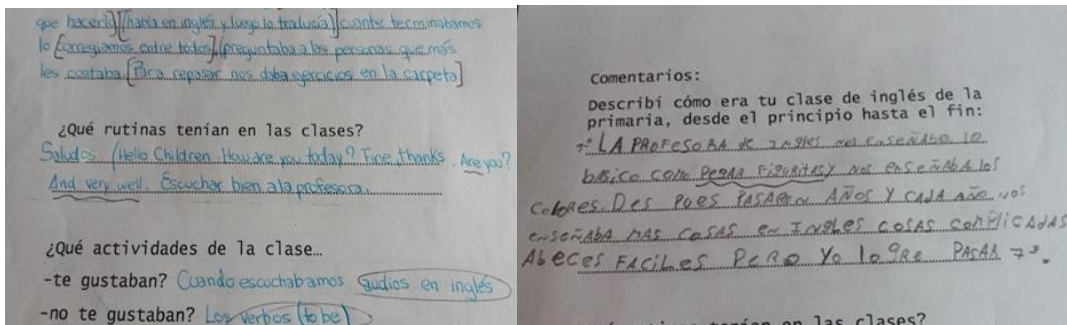 que hacerlo] [habla en inglés y luego lo traducía,] cuante terminabamos
lo [corregiamos entre todos], (preguntaba a las personas que más
les costaba. [Para repasar nos daba ejercicios en la carpeta]
¿Qué rutinas tenían en las clases?
Saludos. (Hello Children. How are you today? Fine, thanks. Are you?
And very well. Escuchar bien a la profesora.
¿Qué actividades de la clase…
-te gustaban? Cuando escuchabamos audios en inglés
-no te gustaban? Los verbos (to be)
Comentarios:
Describí cómo era tu clase de inglés de la
primaria, desde el principio hasta el fin:
LA PROFESORA de ingles nos enseñabo lo
basico como Pegar Figuritas y nos enseñaba los
colores. Des pues PASARON AÑos Y CADA AÑo nos
enseñaba mas cosas en Ingles cosas comPlicadas
Abeces FAciles Pero Yo logre PASAR 7°.
tenían en las clases?